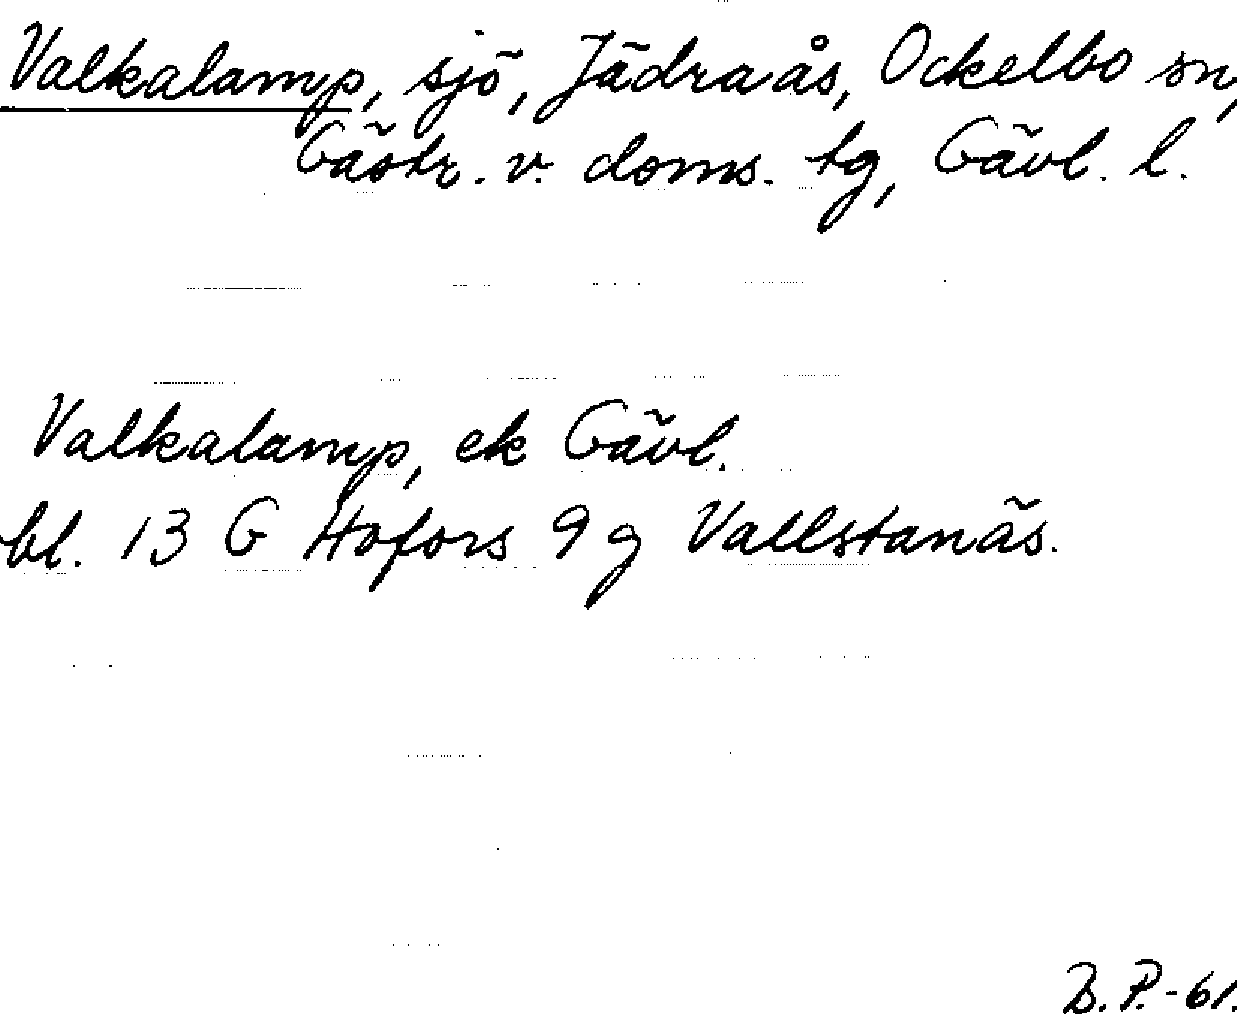 Valkalamp, sjö, Jädraås, Ockelbo sn,
Gästr. v. doms. tg, Gävl. l.
Valkalamp, ek Gävl.
bl. 13 G Hofors 9 g Vallstanäs.
B. P.-61.